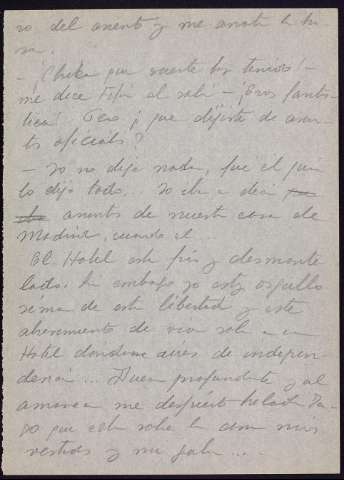 ro del asiento y me anoté la
— ¡Chica que suerte has tenido! —
me dice Pepe al salir — ¡Eres fantás-
tica! Pero ¿que dijiste de asun-
tos oficiales?
— Yo no dije nada, fue el quien
lo dijo todo... Yo iba a decir
asuntos de nuestra casa de
Madrid, cuando el
El Hotel está frío y desmante
lado. Sin embargo yo estoy orgullo
sísima de esta libertad y este
atrevimiento de vivir sola en un
Hotel dándome aires de indepen-
dencia... Duermo profundamente y al
amanecer me despierto helada. Ten
go que echar sobre la cama mis
vestidos y mi